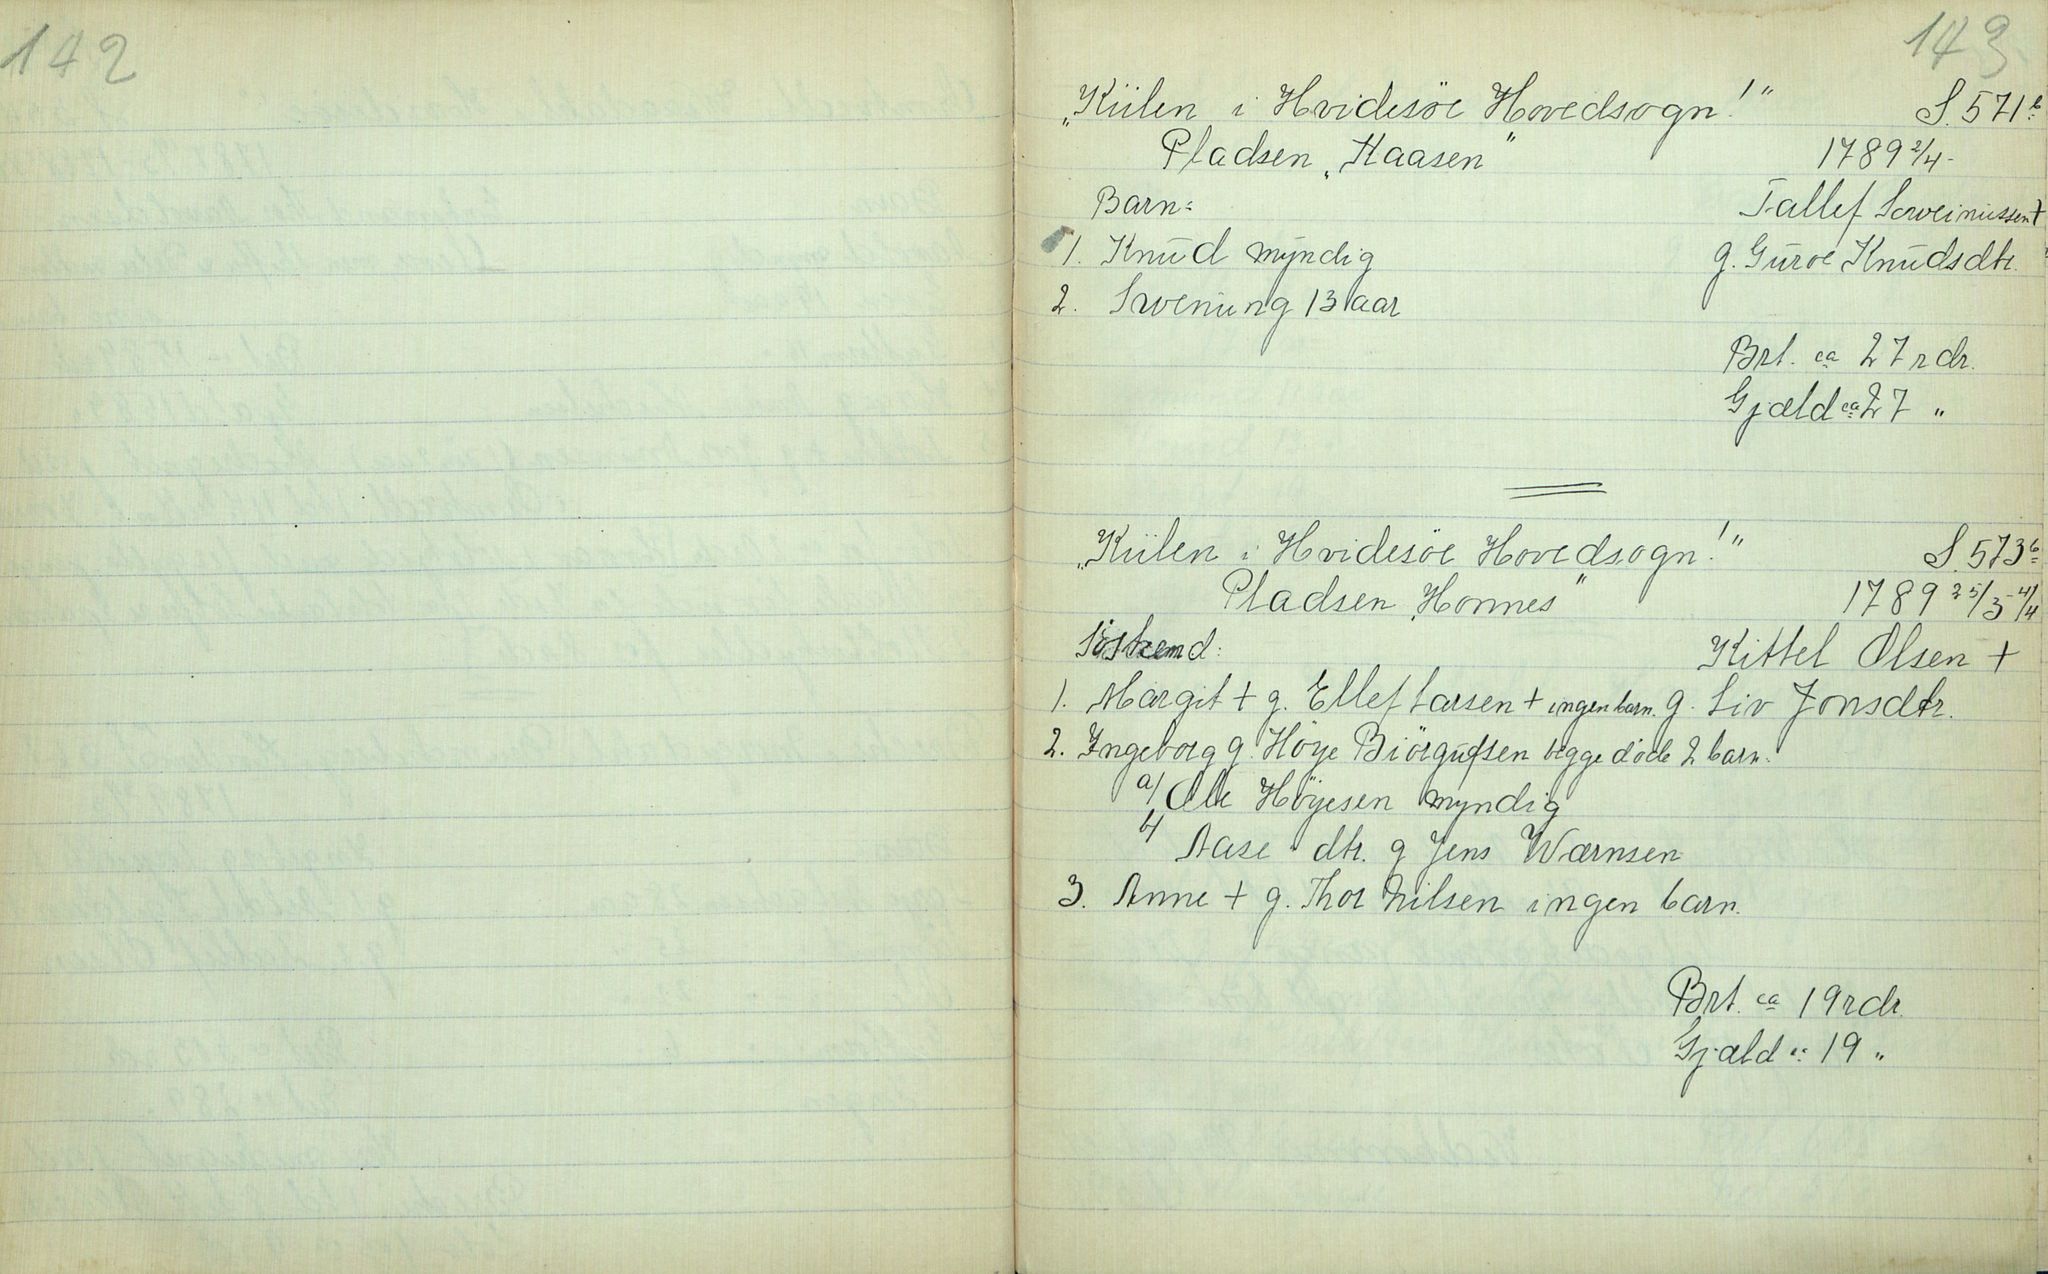 142
143
„Kiilen i Hvidesöe Hovedsogn!" S. 571b
Pladsen „Haasen" 1789 2/4-
Barn: Tallef Sveinussen +
1. Knud myndig g. Guroe Knudsdtr.
2. Svenung 13 aar
Brt. ca 27 rdr.
Gjæld ca 27 "
„Kiilen i Hvidesöe Hovedsogn!" S. 573b
Pladsen „Honnes" 1789 25/3-4/4
Söskend: Kittel Olsen +
1. Margit + g. Ellef Larsen + ingen barn. g. Liv Jonsdtr.
2. Ingeborg g. Höye Biörgufsen begge døde 2 barn.
a/ Ole Höyesen myndig
b/ Aase dtr. g Jens Wærnsen
3. Anne + g. Thor Nilsen ingen barn.
Brt. ca 19 rdr.
Gjæld " 19 "